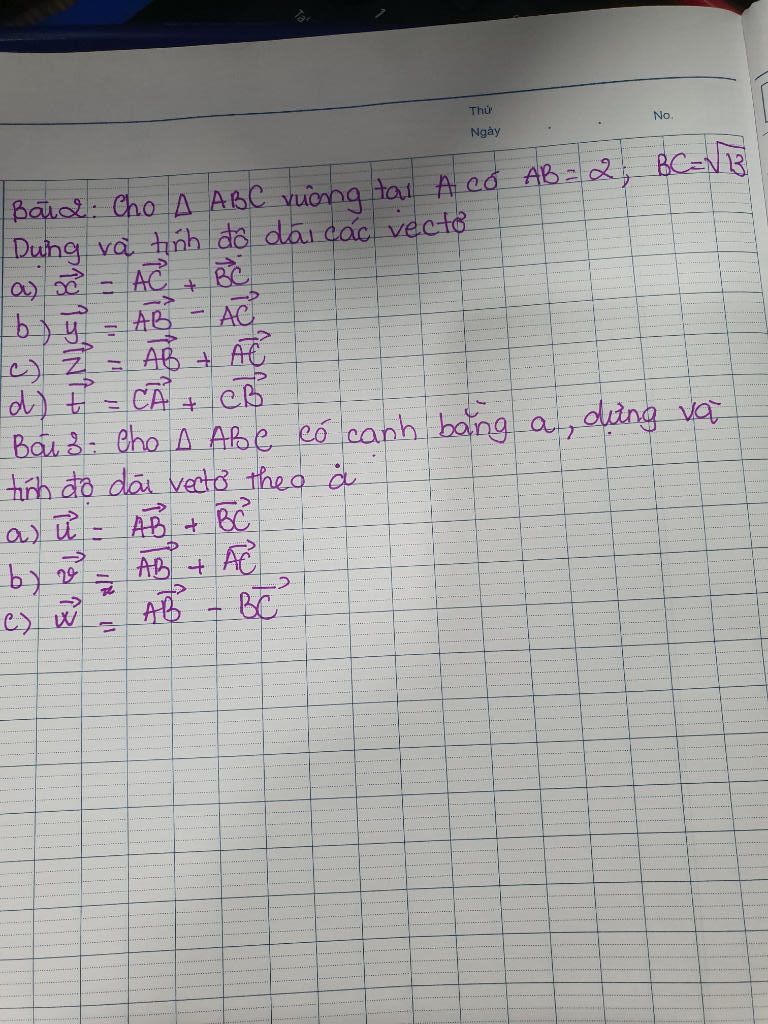 Thứ
Ngày . . No.
Bài 2: Cho Δ ABC vuông tại A có AB = 2; BC = √13
Dựng và tính độ dài các vectơ
a) x⃗ = AC⃗ + BC⃗
b) y⃗ = AB⃗ - AC⃗
c) z⃗ = AB⃗ + AC⃗
d) t⃗ = CA⃗ + CB⃗
Bài 3: Cho Δ ABC có cạnh bằng a, dựng và
tính độ dài vectơ theo a
a) u⃗ = AB⃗ + BC⃗
b) v⃗ = AB⃗ + AC⃗
c) w⃗ = AB⃗ - BC⃗